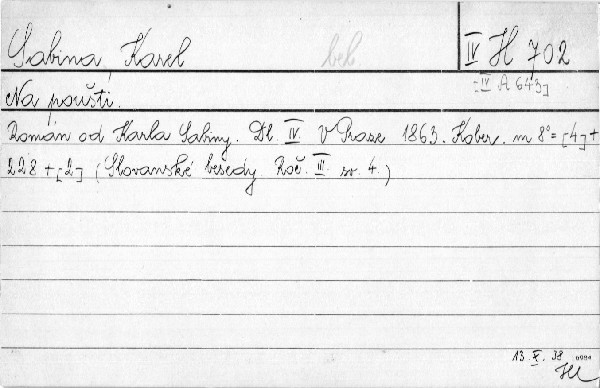 Sabina, Karel beb. IV H 702
[IV A 643]
Na poušti.
Román od Karla Sabiny. Dl. IV. V Praze 1863. Kober. m 8°= [4]+
228+[2] (Slovanské besedy. Roč. III. sv. 4.)
13. X. 38